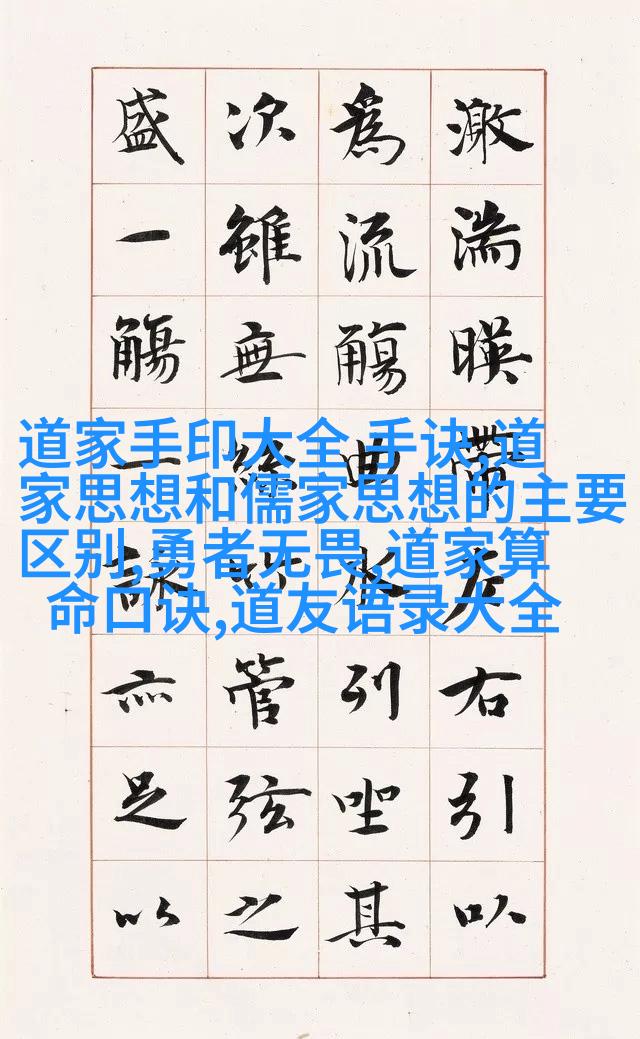 激湍暎帶左右引以
為流觴曲水列坐其
次雖無絲竹管弦之
盛一觴一詠亦足以
道家手印大全,手诀,道
家思想和儒家思想的主要
区别,勇者无畏,道家算
命口诀,道友语录大全